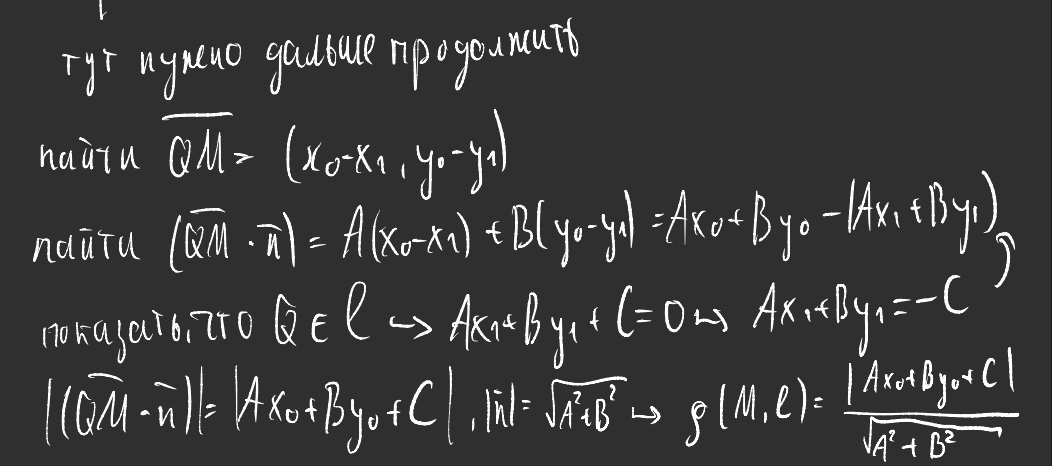 тут нужно дальше продолжить
найти QM = (x₀-x₁, y₀-y₁)
найти (QM · n) = A(x₀-x₁) + B(y₀-y₁) = Ax₀ + By₀ - (Ax₁ + By₁)
показать, что Q ∈ l ↪ Ax₁ + By₁ + C = 0 ↪ Ax₁ + By₁ = -C
|(QM · n)| = |Ax₀ + By₀ + C|, |n| = √(A² + B²) ↪ ρ(M, l) = |Ax₀ + By₀ + C| / √(A² + B²)